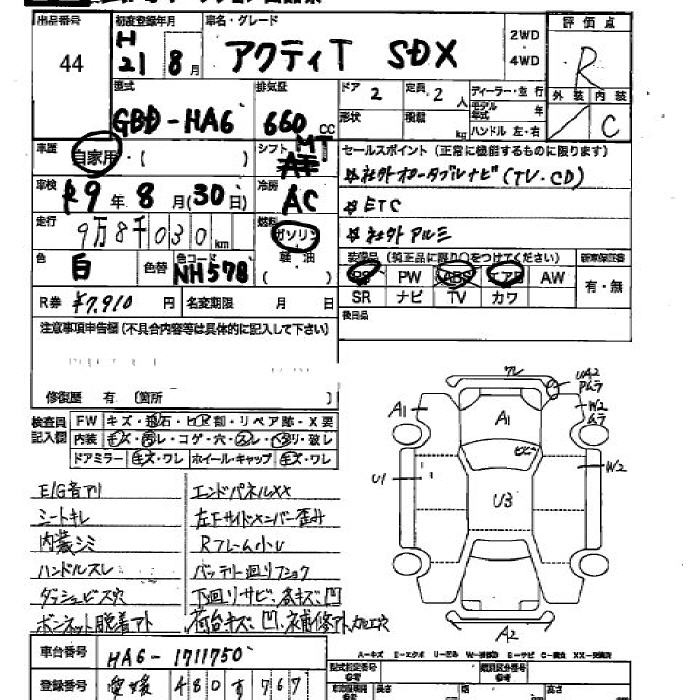 出品番号 44
初度登録年月 H21 8月
車名・グレード アクティT SDX 2WD・4WD
評価点 R
外装 内装 C
型式 GBD-HA6
排気量 660 cc
ドア 2 定員 2人 ディーラー・並行
形状 積載 kg モデル年式 年
ハンドル 左・右
車歴 自家用・( )
シフト MT
セールスポイント (正常に機能するものに限ります)
☆社外ポータブルナビ(TV・CD)
☆ETC
☆社外アルミ
車検 R9年8月(30日)
冷房 AC
走行 9万8千030km
燃料 ガソリン 軽油 ( )
色 白 色替 色コード NH578
装備品 (純正品に限り○をつけてください) 新車保証書
PS PW ABS エアB AW 有・無
SR ナビ TV カワ
後日品
R券 ¥7,910円 名変期限 月 日
注意事項申告欄 (不具合内容等は具体的に記入して下さい)
修復歴 有 〔箇所 〕
検査員記入欄
FW キズ・飛石・ヒビ割・リペア跡・X要
内装 キズ・汚レ・コゲ・穴・スレ・ヘタリ・破レ
ドアミラー キズ・ワレ ホイール・キャップ キズ・ワレ
E/G音アリ エンドパネルXX
シートキレ 左Fサイドメンバー歪み
内装シミ Rフレーム小U
ハンドルスレ バッテリー廻りフショク
ダッシュビス穴 下廻りサビ、各キズ、凹
ボンネット脱着アト 荷台キズ、凹、補修アト、加工穴
ワレ UA2 Pムラ
A1 A1 W2 ムラ
ヒビ
U1 U3 W2
A2
A-キズ E-エクボ U-凹み W-補修跡 S-サビ C-腐食 XX-交換済
車台番号 HA6-1711750
登録番号 愛媛 480 す 767
型式指定番号 類別区分番号
長さ 幅 高さ